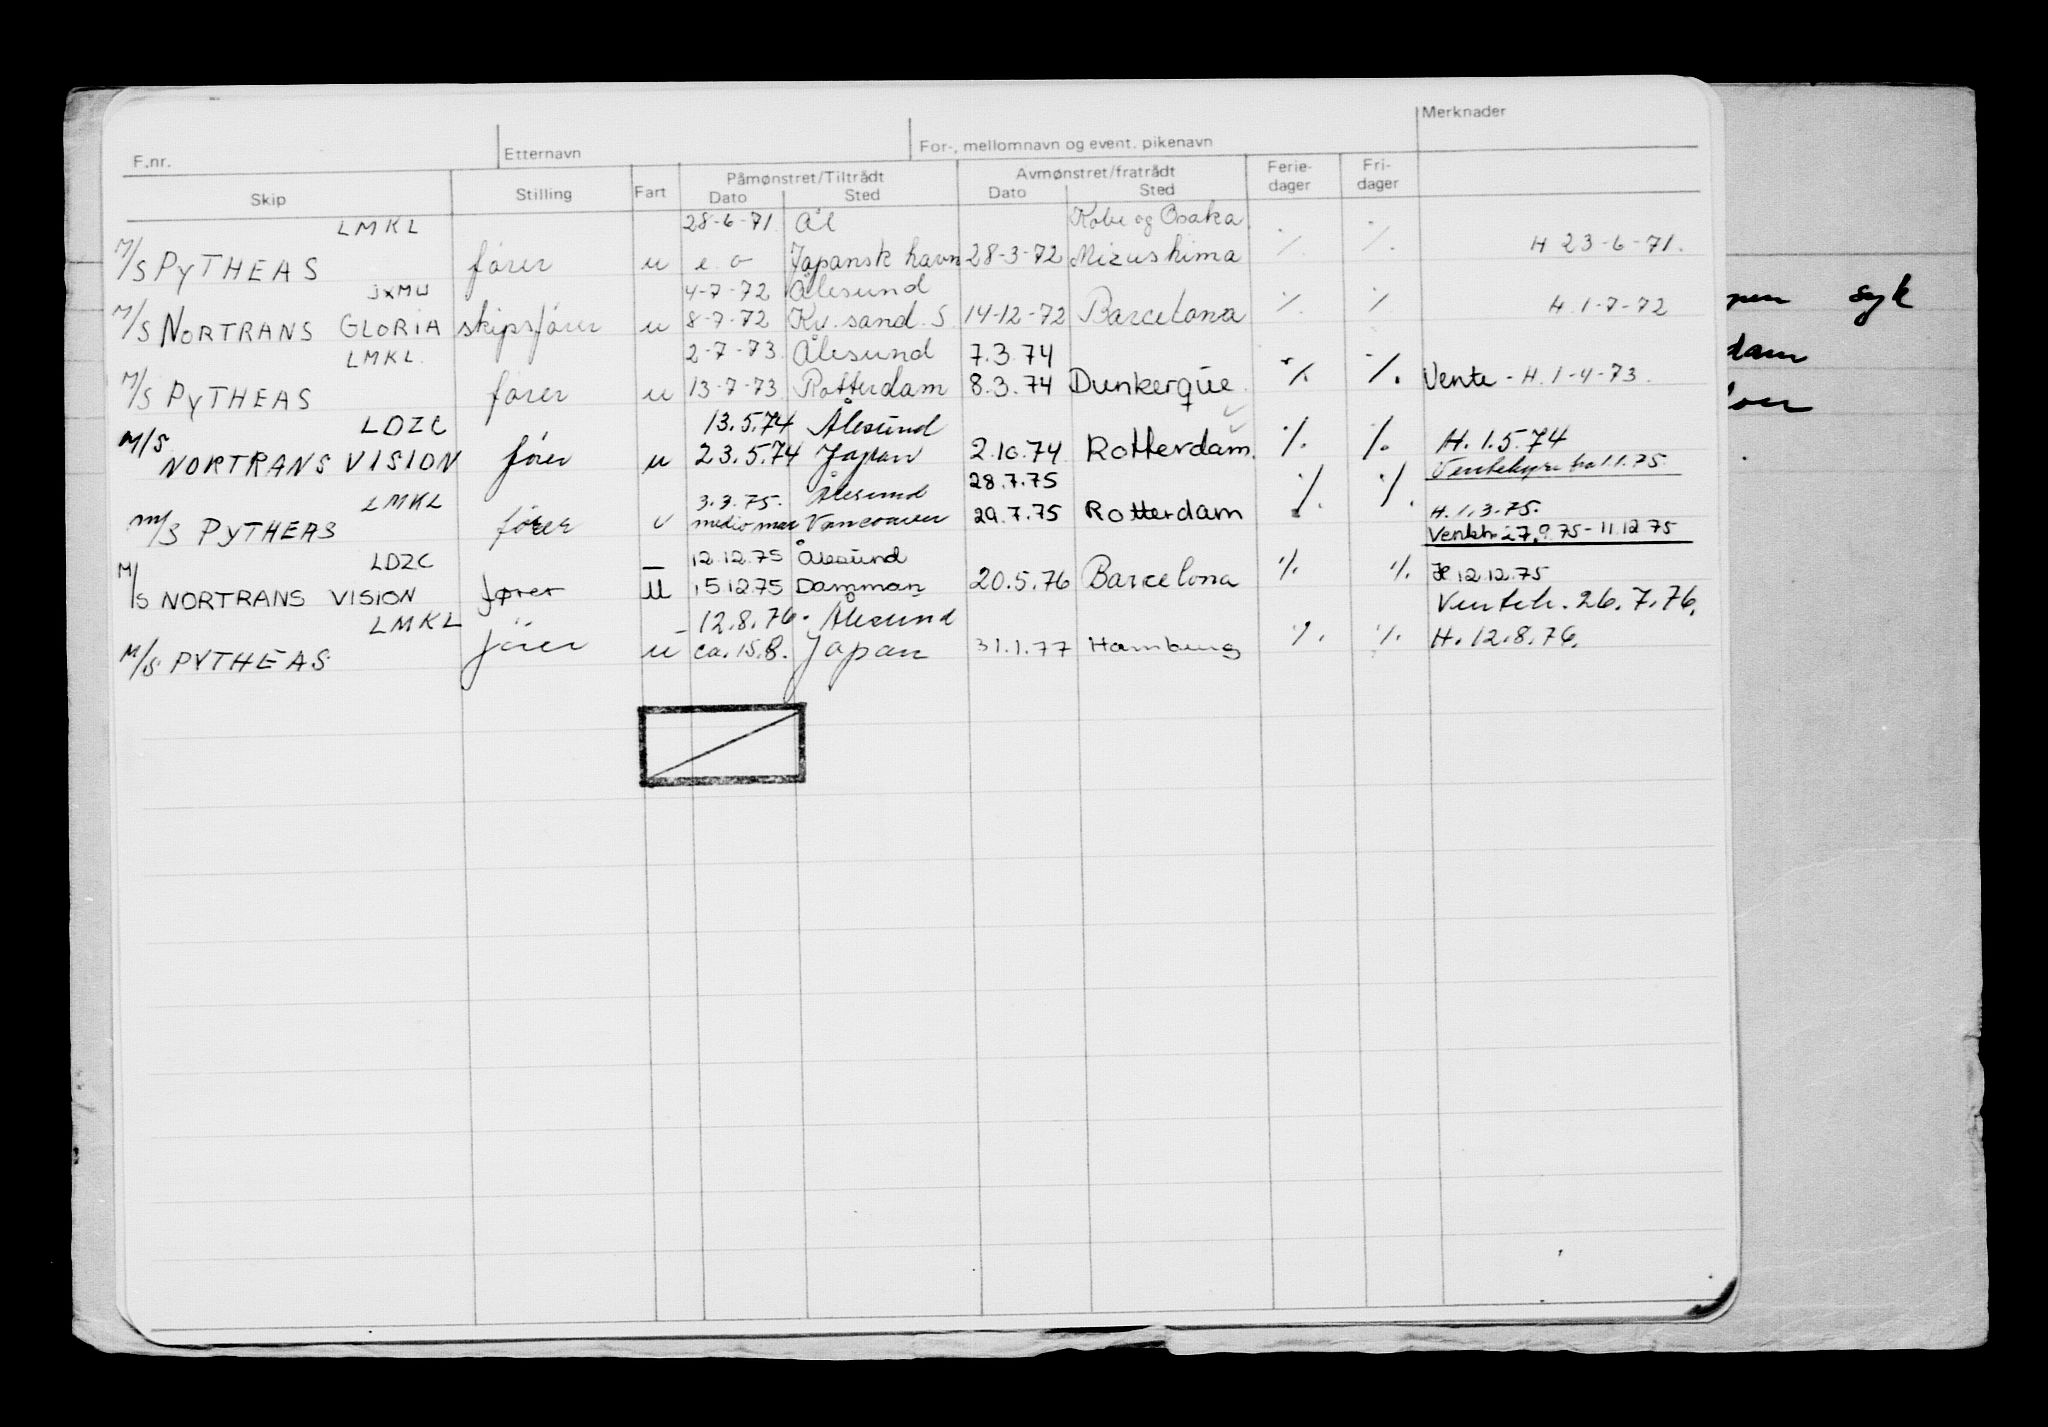 Merknader
F.nr. Etternavn For-, mellomnavn og event. pikenavn
Skip Stilling Fart Påmønstret/Tiltrådt Avmønstret/fratrådt Ferie-dager Fri-dager
Dato Sted Dato Sted
LMKL 28-6-71 Ål Kobe og Osaka ٪ ٪
M/S PYTHEAS fører u e.o Japansk havn 28-3-72 Mizushima ٪ ٪. H 23-6-71.
JXMU 4-7-72 Ålesund
M/S NORTRANS GLORIA skipsfører u 8-7-72 Kr.sand.S 14-12-72 Barcelona ٪ ٪ H.1-7-72
LMKL. 2-7-73. Ålesund 7.3.74
M/S PYTHEAS fører u 13-7-73 Rotterdam 8.3.74 Dunkerque. ٪ ٪. Vente - H.1-4-73.
LDZC 13.5.74 Ålesund
M/S NORTRANS VISION fører u 23.5.74 Japan 2.10.74 Rotterdam. ٪ ٪. H. 1.5.74
1.1.75.
LMKL 3.3.75. Ålesund 28.7.75
m/s PYTHEAS fører u medio mar Vancouver 29.7.75 Rotterdam ٪ ٪. H.1.3.75.
27.9.75 - 11.12.75
LDZC 12.12.75 Ålesund
M/S NORTRANS VISION fører u 15.12.75 Damman 20.5.76 Barcelona ٪ ٪. H 12.12.75
Venteh. 26.7.76.
LMKL 12.8.76. Ålesund
M/S PYTHEAS fører u ca. 15.8. Japan 31.1.77 Hamburg ٪. ٪. H. 12.8.76.
syk
dam